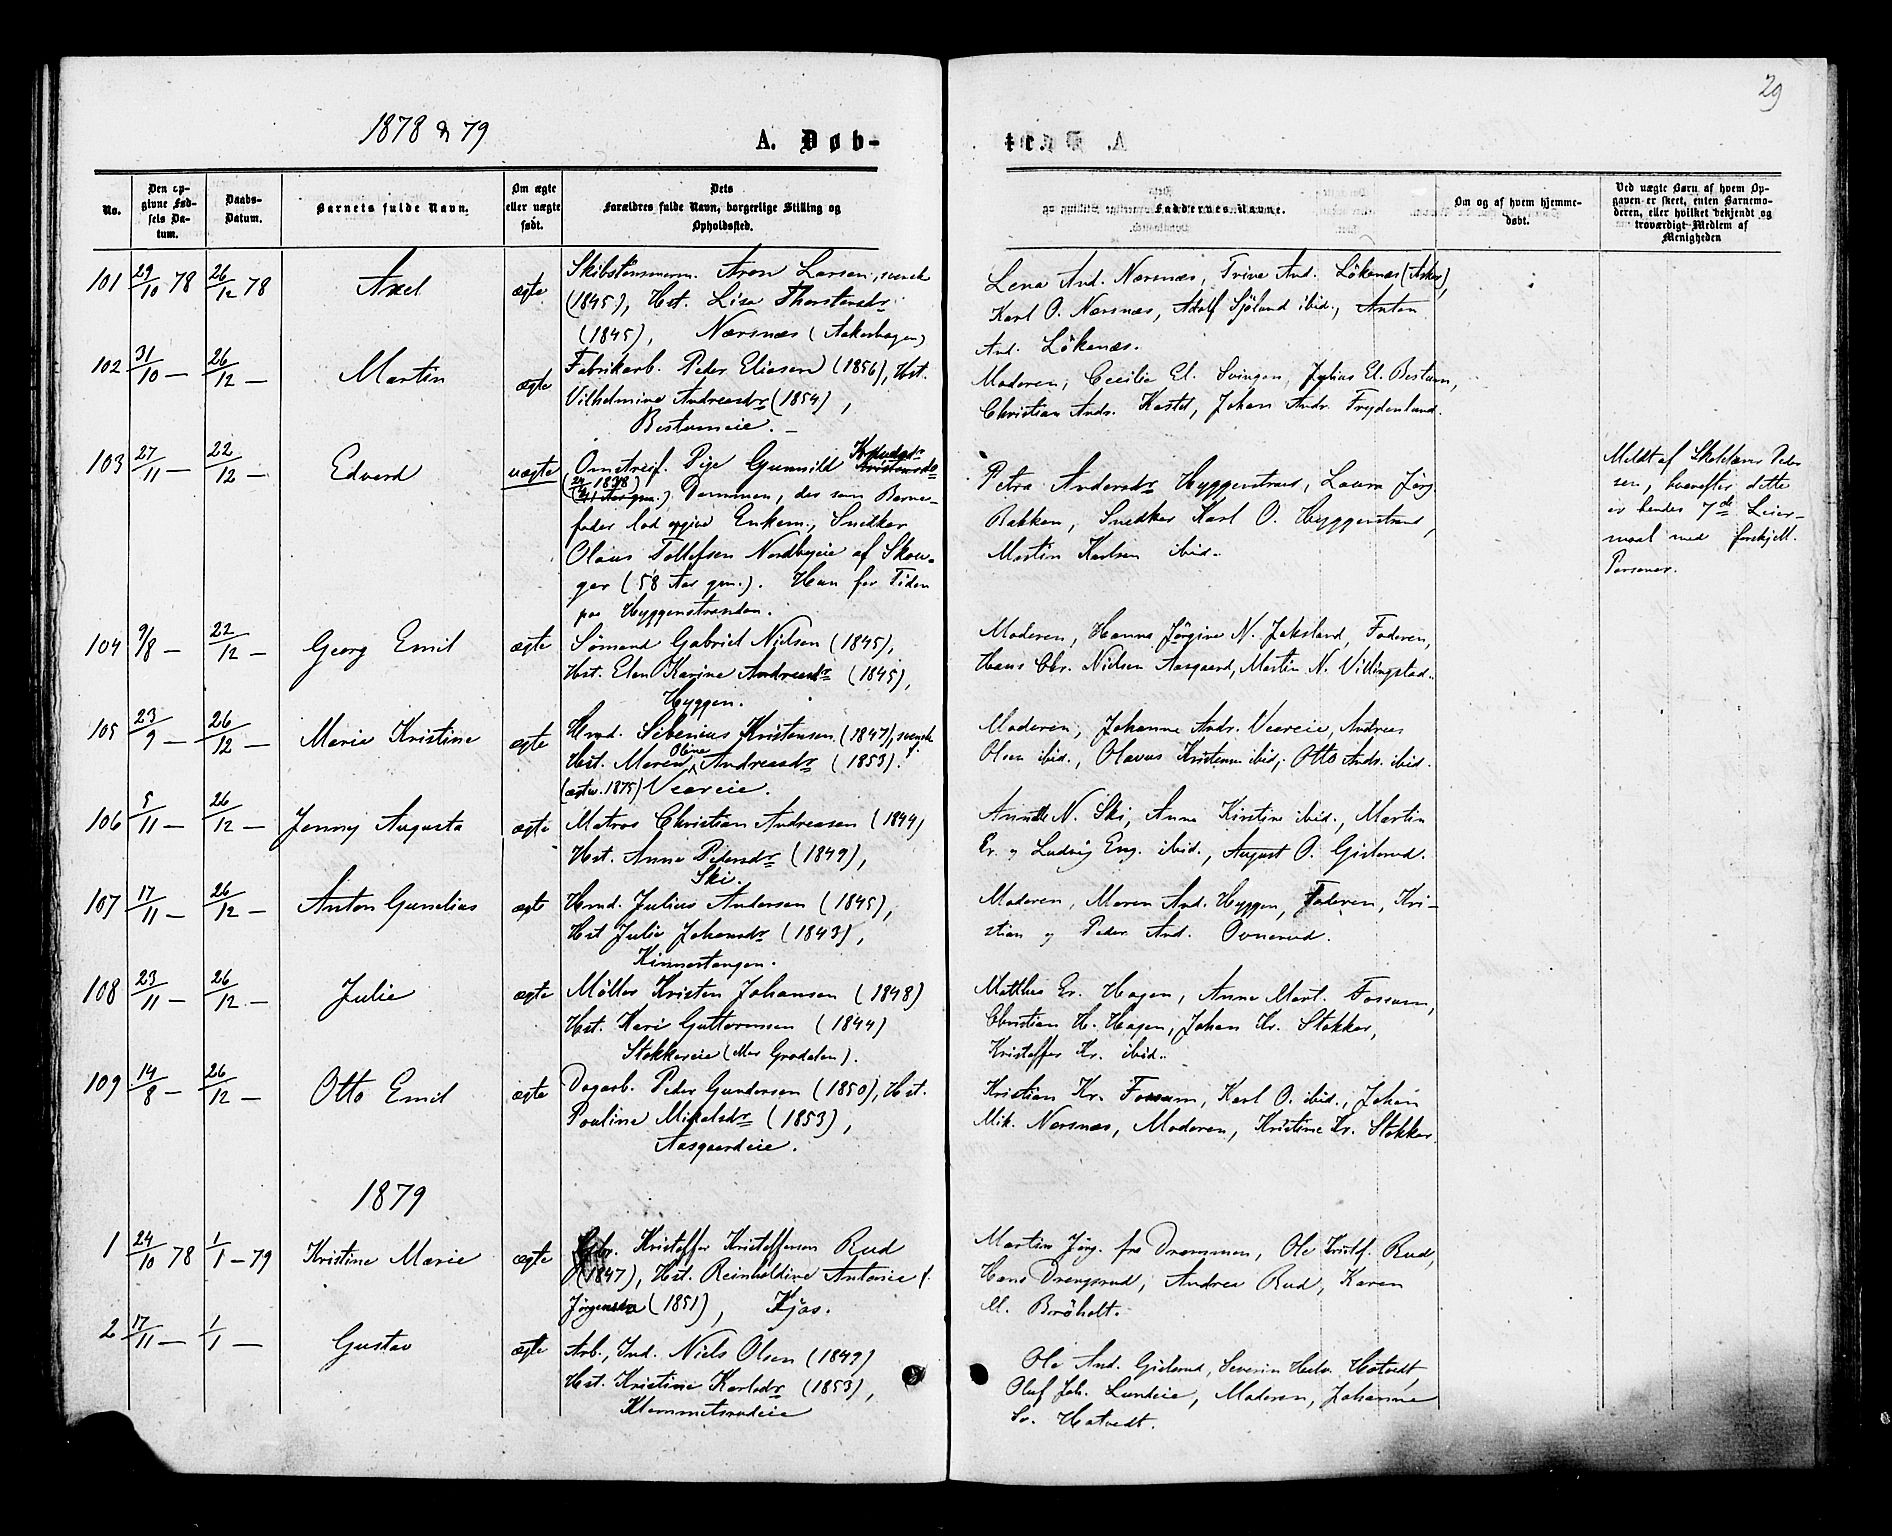 29
1878 & 79
A. Døb-
No.
Den op-
givne Fød-
sels Da-
tum.
Daabs-
Datum.
Barnets fulde Navn.
Om ægte
eller uægte
født.
Dets
Forældres fulde Navn, borgerlige Stilling og
Opholdssted.
Faddernes Navne.
Om og af hvem hjemme-
døbt.
Ved uægte Børn af hvem Op-
gaven er skeet, enten Barnemo-
deren, eller hvilket bekjendt og
troværdigt Medlem af
Menigheden
101 29/10 78 26/12 78 Axel ægte
Skibstømmerm. Aron Larsen, svensk
(1845), Hst. Lisa Thorstensdr
(1845), Nærsnæs (Aakerhagen)
Lena And. Nærsnæs, Trine And. Løkenæs (Asker),
Karl O. Nærsnæs, Adolf Sjøland ibid., Anton
And. Løkenæs.
102 31/10 — 26/12 — Martin ægte
Fabrikarb. Peder Eliasen (1856), Hst.
Vilhelmine Andreasdr (1854),
Bestumeie. —
Moderen, Cecilie El. Svingen, Julius El. Bestum,
Christian Andr. Kastet, Johan Andr. Frydenlund.
103 27/11 — 22/12 — Edvard uægte
Omstreif. Pige Gunnild
Drammen, der som Barne-
fader lod opgive Enkem., Snedker
Olaus Tollefsen Nordbyeie af Skou-
ger (58 Aar gm.). Han for Tiden
paa Hyggenstranden.
Petra Andersdr Hyggenstrand, Laura Jørg.
Bakken, Snedker Karl O. Hyggenstrand,
Martin Karlsen ibid.
Meldt af Skolelærer Peder-
sen, hvorefter dette
er hendes 7de Leier-
maal med forskjell.
Personer.
104 9/8 — 22/12 — Georg Emil ægte
Sømand Gabriel Nielsen (1845),
Hst. Elen Karine Andreasdr (1845),
Hyggen.
Moderen, Hanna Jørgine N. Jaksland, Faderen,
Hans Chr. Nielsen Aasgaard, Martin N. Villingstad.
105 23/9 — 26/12 — Marie Kristine ægte
Hmd. Siberius Kristensen (1847), svensk
Hst. Maren Oline Andreasdr (1853).
(ægtev. 1875) Veareie.
Moderen, Johanne Andr. Veareie, Andreas
Olsen ibid., Olavus Kristensen ibid., Otto Andr. ibid.
106 5/11 — 26/12 — Jenny Augusta ægte
Matros Christian Andreasen (1844)
Hst. Anne Pedersdr (1849),
Ski.
N. Ski, Anne Kirstine ibid., Martin
Er. og Ludvig Eng. ibid., August O. Gislerud.
107 17/11 — 26/12 — Anton Gunelius ægte
Hmd. Julius Andersen (1845),
Hst Julie Johansdr (1843),
Kinnartangen.
Moderen, Maren And. Hyggen, Faderen, Kri-
stian og Peder And. Ovnerud.
108 23/11 — 26/12 — Julie ægte
Møller Kristen Johansen (1848)
Hst. Kari Guttormsen (1844)
Stokkereie (Mar Grodalen).
Matthea Er. Hagen, Anne Mart. Fossum,
Christian H. Hagen, Johan Kr. Stokker,
Kristoffer Kr. ibid.
109 14/8 — 26/12 — Otto Emil ægte
Dagarb. Peder Gundersen (1850), Hst.
Pauline Mikalsdr (1853),
Aasgaardeie.
Kristian Kr. Fossum, Karl O. ibid., Johan
Mik. Nærsnæs, Moderen, Kristine Kr. Stokker.
1879
1 24/10 78 1/1 — 79 Kristine Marie ægte
Kristoffer Kristoffersen Rud
(1847), Hst. Reinholdine Antonie f.
Jørgensen (1851), Kjos.
Martin Jørg. fra Drammen, Ole Kristof. Rud,
Hans Drengsrud, Andrea Rud, Karen
M. Brøholt.
2 17/11 — 1/1 — Gustav ægte
Arb., Ind. Niels Olsen (1849)
Hst. Kristine Karlsdr (1853),
Klemmetsrudeie
Ole And. Gislerud, Severin Halv. Hotvedt,
Oluf Joh. Lundeie, Moderen, Johanne
Sv. Hotvedt.